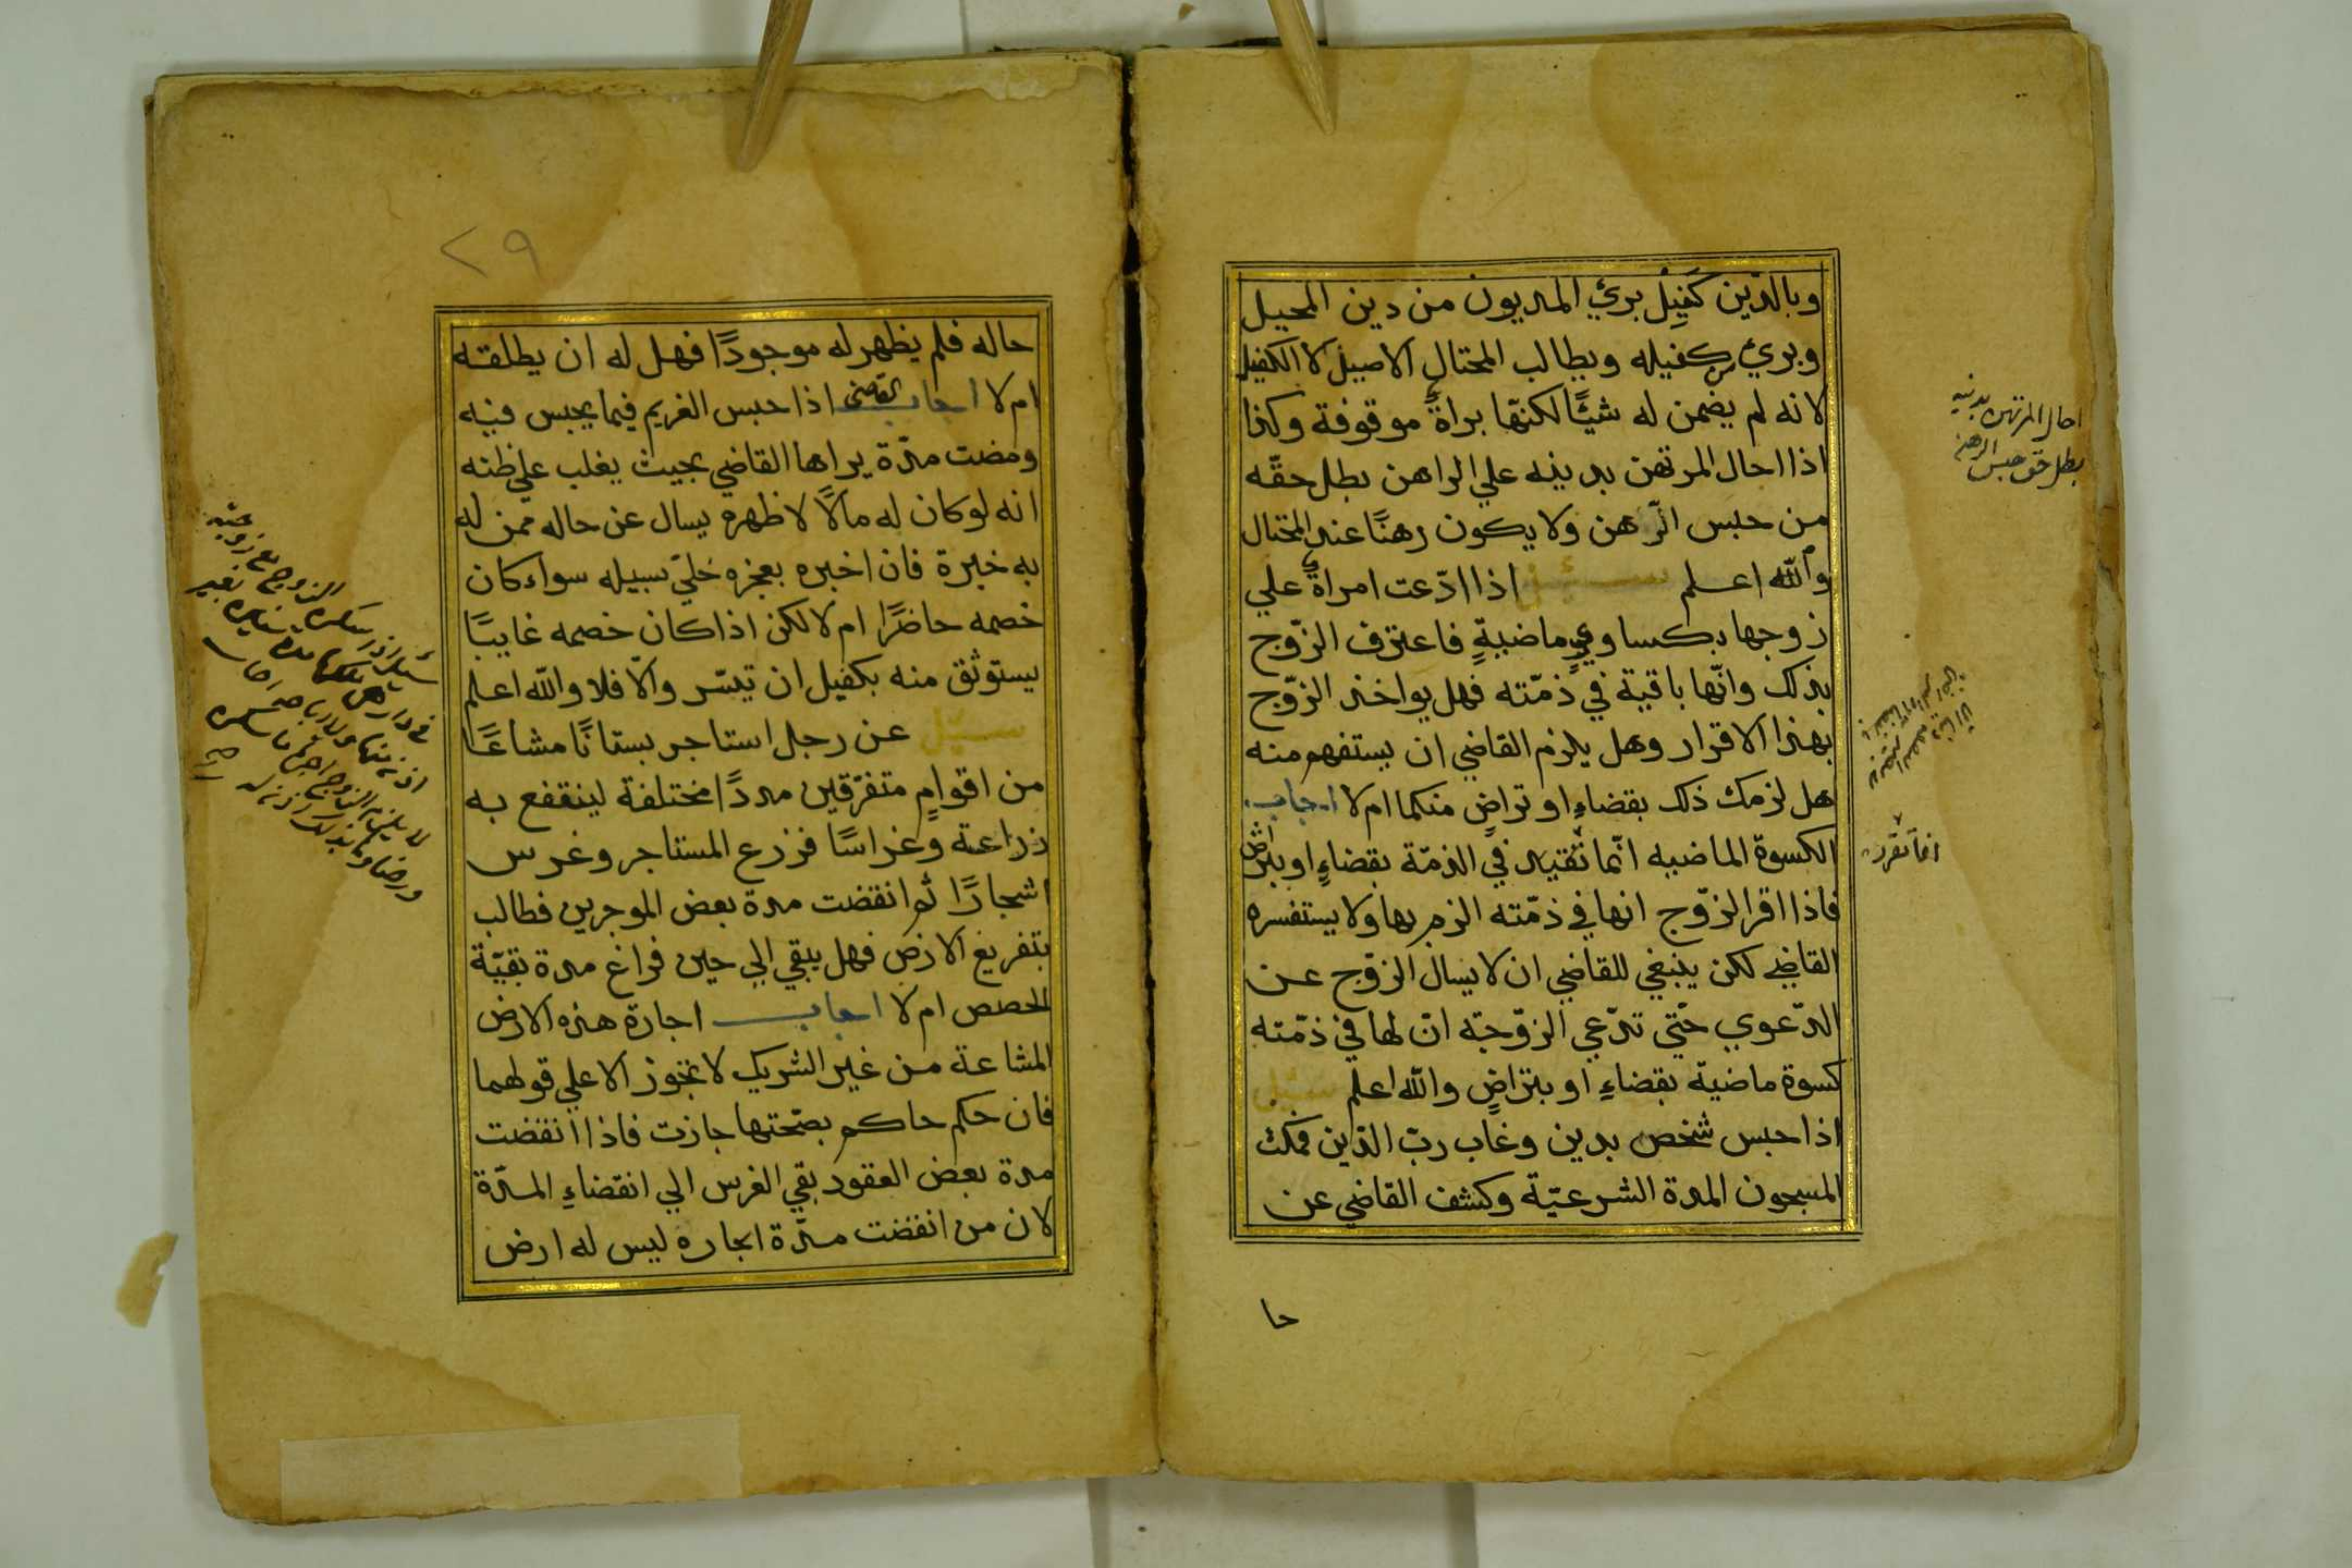 وبالدّين كَفِيل برئَ المديون من دين المحيل
وبرئَ كفيله ويطالب المحتال الاصيل لا الكفيل
لانه لم يضمن له شئًا لكنّها براةً موقوفة وكذا
اذا احال المرتهن بدينه علي الراهن بطل حقّه
من حبس الرّهن ولا يكون رهنًا عند المحتال
والله اعلم سئل اذا ادّعت امراةً علي
زوجها بكساويٍ ماضيةٍ فاعترف الزّوج
بذلك وانّها باقية في ذمّته فهل يواخذ الزّوج
بهذا الاقرار وهل يلزم القاضي ان يستفهم منه
هل لزمك ذلك بقضاءٍ او تراضٍ منكما ام لا اجاب
الكسوة الماضيه انّما تقيد في الذمّة بقضاءٍ او بتراض
فاذا اقر الزّوج انها في ذمّته الزم بها ولا يستفسره
القاضي لكن ينبغي للقاضي ان لا يسال الزّوج عن
الدّعوي حتّي تدّعي الزّوجة انّ لها في ذمّته
كسوة ماضيّة بقضاءٍ او بتراضٍ والله اعلم سئل
اذا حبس شخص بدين وغاب ربّ الدّين فمكث
المسجون المدة الشرعيّة وكشف القاضي عن
حا
احال المرتهن بدينه
بطل حق حبس الرهن
انما تقرر
٢٩
حاله فلم يظهر له موجودًا فهل له ان يطلقه
ام لا اجاب القاضي اذا حبس الغريم فيما يحبس فيه
ومضت مدّة يراها القاضي بحيث يغلب علي ظنه
انه لو كان له مالًا لاظهره يسال عن حاله ممن له
به خبرة فان اخبره بعجزه خليّ سبيله سواء كان
خصمه حاضرًا ام لا لكن اذا كان خصمه غايبًا
يستوثق منه بكفيل ان تيسّر والّا فلا والله اعلم
سئل عن رجل استاجر بستانًا مشاعًا
من اقوامٍ متفرّقين مددًا مختلفة لينتفع به
زراعة وغراسًا فزرع المستاجر وغرس
اشجارًا ثم انقضت مدة بعض الموجرين فطالب
بتفريغ الارض فهل يبقي الي حين فراغ مدة بقيّة
الحصص ام لا اجاب اجارة هذه الارض
المشاعة من غير الشريك لا تجوز الا علي قولهما
فان حكم حاكم بصحّتها جازت فاذا انقضت
مدة بعض العقود بقي الغرس الي انقضاءِ المدّة
لان من انقضت مدّة ايجاره ليس له ارض